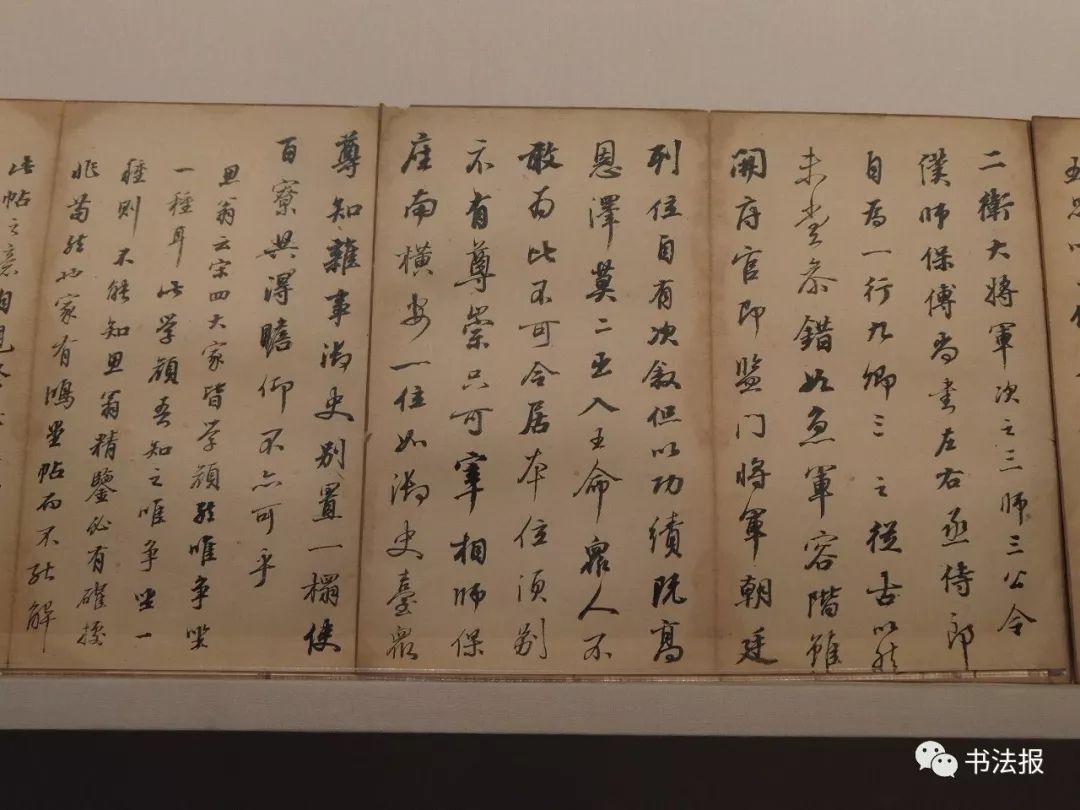 二衛大將軍次之三師三公令
僕師保傅尚書左右丞侍郎
自為一行九卿三之從古以然
未嘗叅錯如魚軍容階雖
開府官即監門將軍朝廷
列位自有次敘但以功績既高
恩澤莫二出入王命眾人不
敢為比不可令居本位須別
示有尊崇只可宰相師保
座南橫安一位如御史臺眾
尊知雜事御史別置一榻使
百寮共得瞻仰不亦可乎
思翁云宋四大家皆學顏然唯爭坐
一種耳此學顏吾知之唯爭坐一
種則不能知思翁精鑒必有確據
非苟然也家有鴻堂帖而不能解
此帖之意向見
书法报